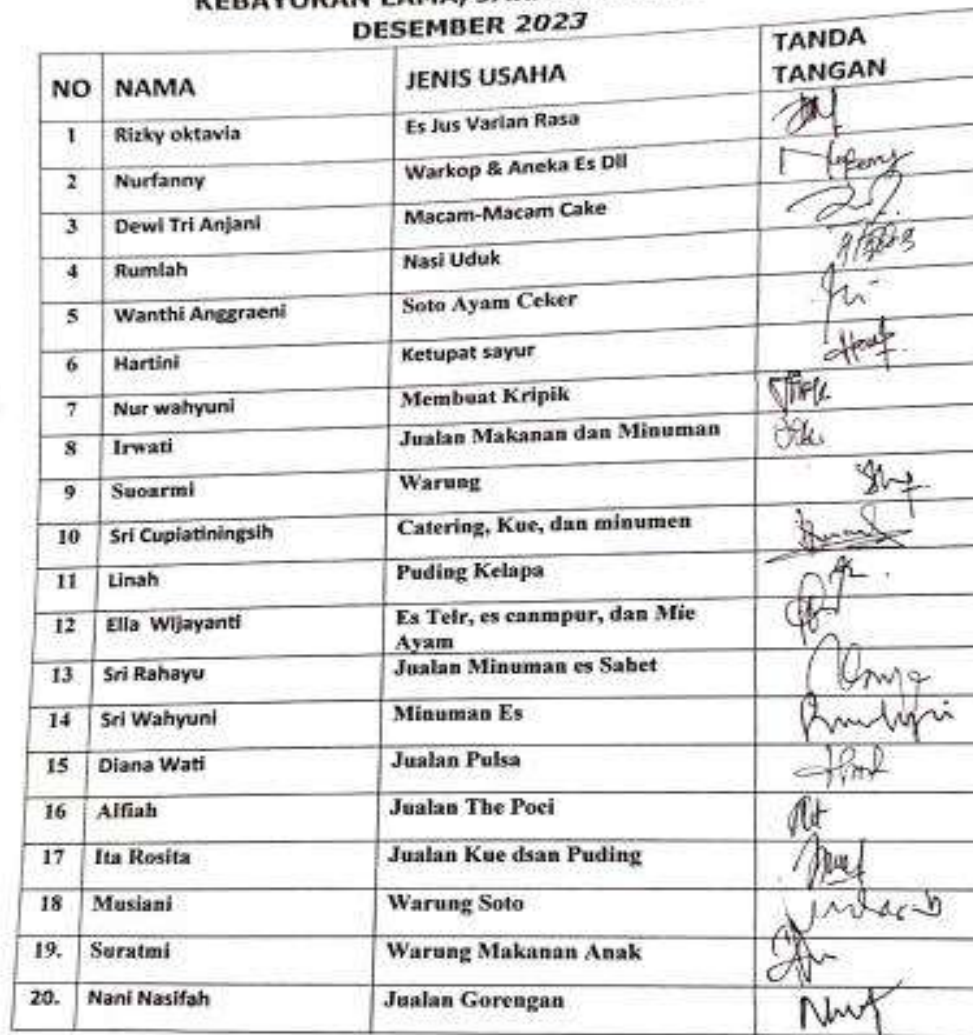 KEBAYORAN LAMA,
DESEMBER 2023
NO NAMA JENIS USAHA TANDA TANGAN
1 Rizky oktavia Es Jus Varian Rasa
2 Nurfanny Warkop & Aneka Es Dll
3 Dewi Tri Anjani Macam-Macam Cake
4 Rumlah Nasi Uduk
5 Wanthi Anggraeni Soto Ayam Ceker
6 Hartini Ketupat sayur
7 Nur wahyuni Membuat Kripik
8 Irwati Jualan Makanan dan Minuman
9 Suoarmi Warung
10 Sri Cupiatiningsih Catering, Kue, dan minumen
11 Linah Puding Kelapa
12 Ella Wijayanti Es Telr, es canmpur, dan Mie
Ayam
13 Sri Rahayu Jualan Minuman es Sahet
14 Sri Wahyuni Minuman Es
15 Diana Wati Jualan Pulsa
16 Alfiah Jualan The Poci
17 Ita Rosita Jualan Kue dsan Puding
18 Musiani Warung Soto
19. Suratmi Warung Makanan Anak
20. Nani Nasifah Jualan Gorengan